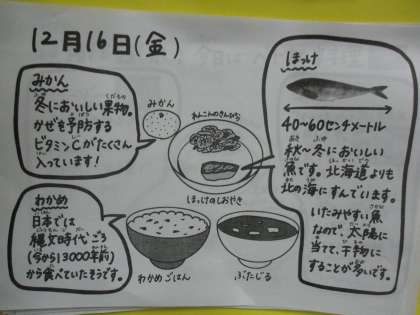 12月16日(金)
みかん
冬においしい果物。
かぜも予防する
ビタミンCがたくさん
入っています！
みかん
れんこんのきんぴら
ほっけのしおやき
ほっけ
40〜60センチメートル
秋〜冬においしい
魚です。北海道よりも
北の海にすんでいます。
いたみやすい魚
なので、太陽に
当てて、干物に
することが多いです。
わかめ
日本では
縄文時代ごろ
(今から13000年前)
から食べていたそうです。
わかめごはん
ぶたじる